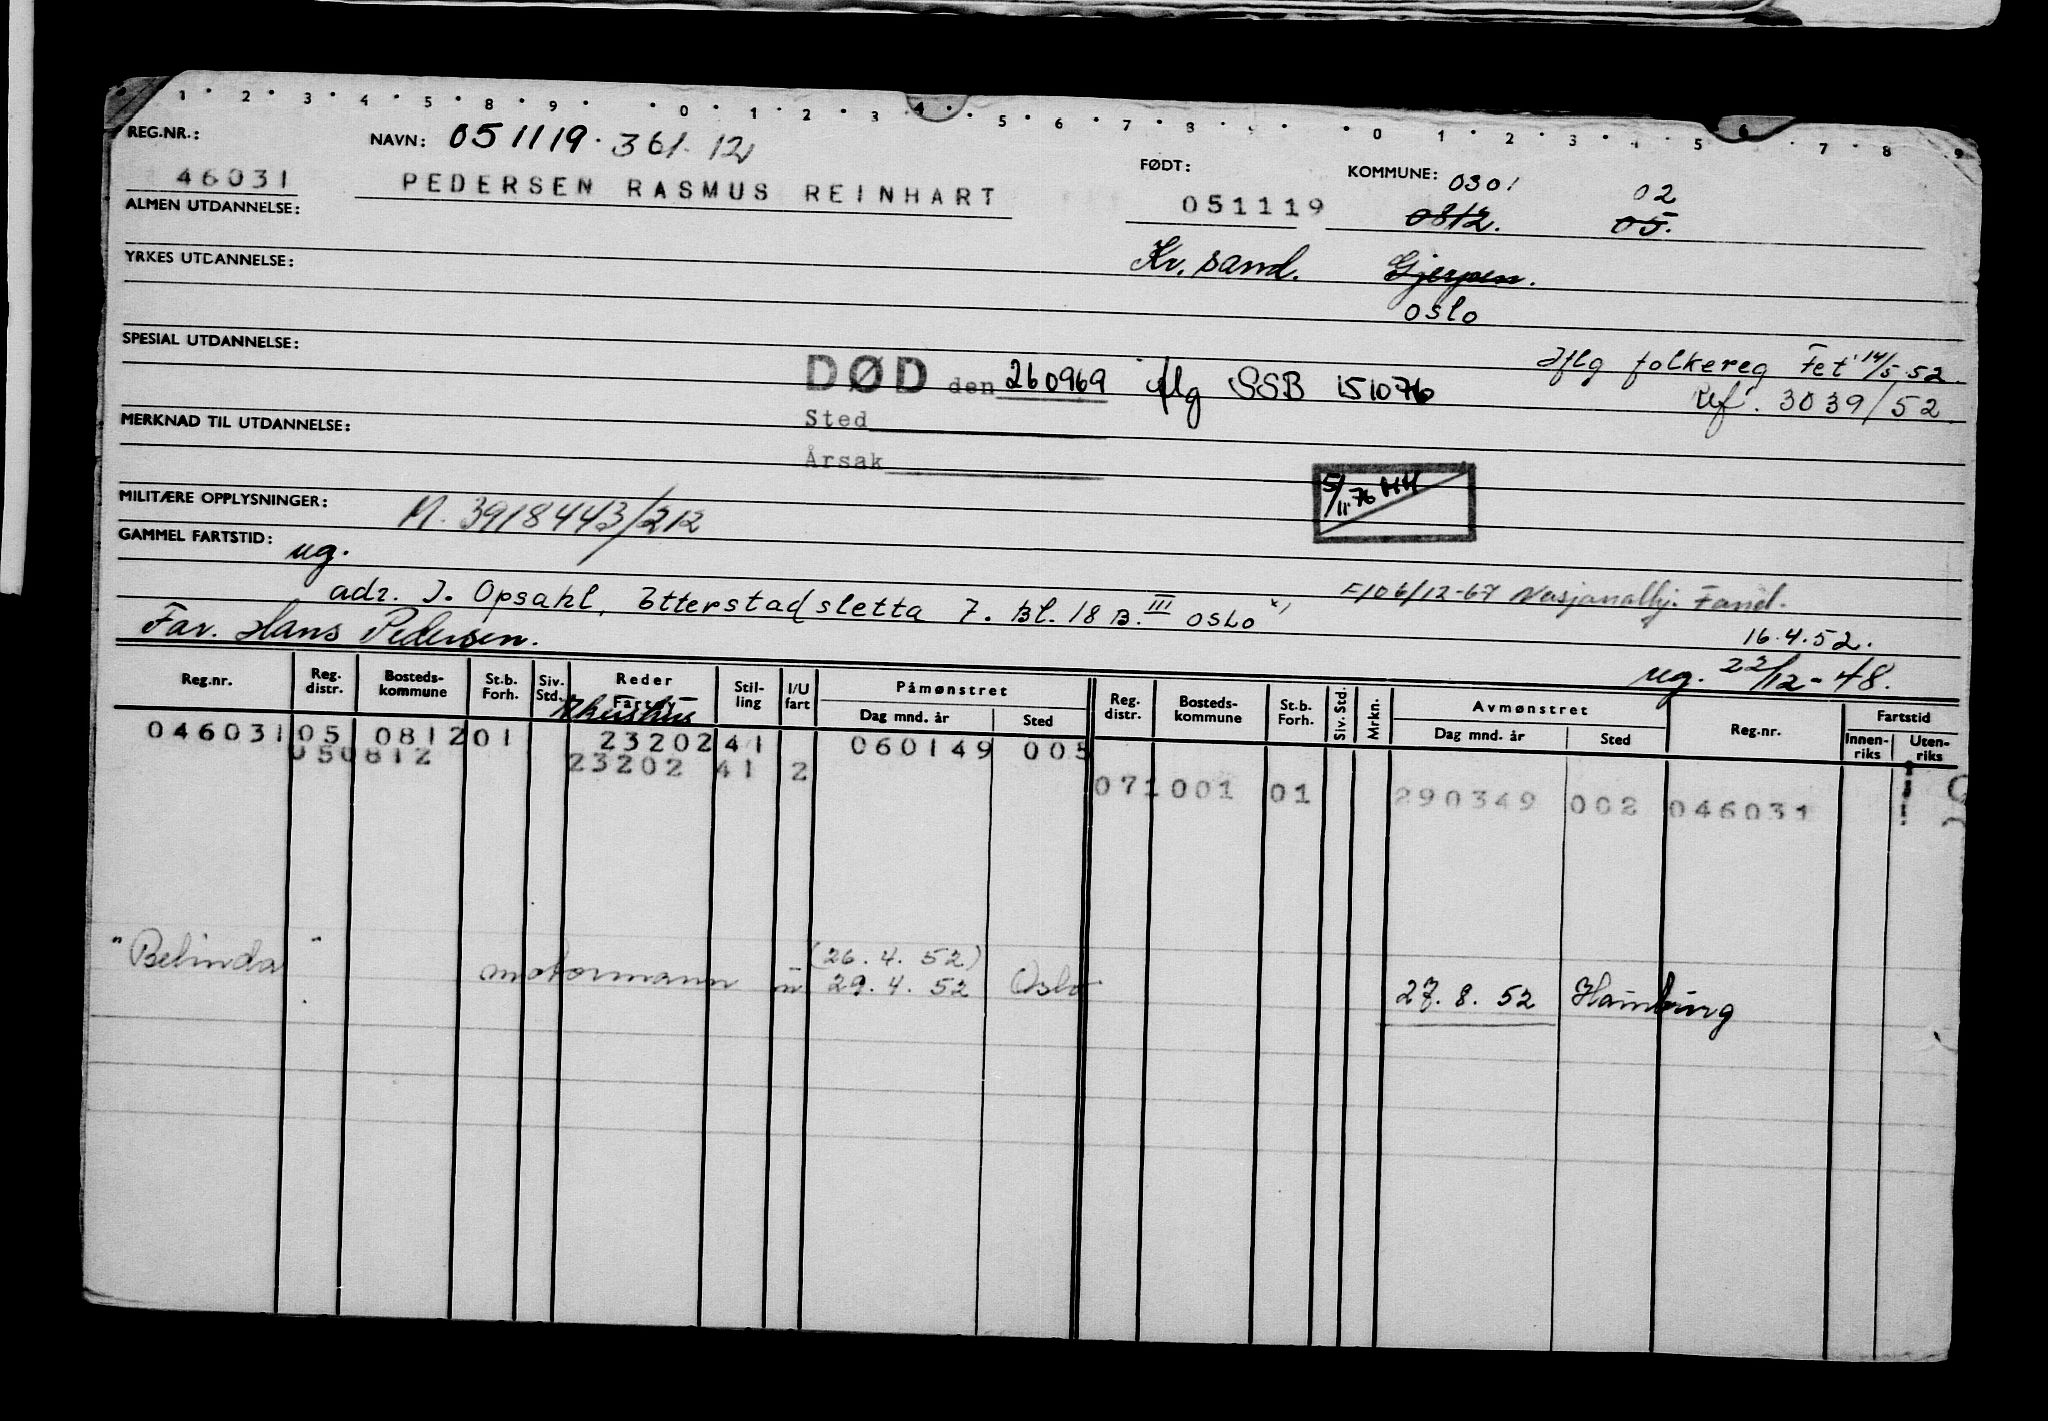 1 2 3 4 5 8 9 0 1 2 3 4 5 6 7 8 9 0 1 2 3 4 5 6 7 8 9
REG.NR.: NAVN: 051119. 361. 12 FØDT: KOMMUNE: 0301 02
46031 PEDERSEN RASMUS REINHART 051119 0812. 05.
ALMEN UTDANNELSE:
Kr. sand. Gjerpen.
YRKES UTDANNELSE:
Oslo
SPESIAL UTDANNELSE:
Iflg folkereg Fet 14/5 52
DØD den 260969 iflg SSB 151076
Ref. 3039/52
Sted
MERKNAD TIL UTDANNELSE:
Årsak
5/11 76 HH
MILITÆRE OPPLYSNINGER: M. 3918443/212
GAMMEL FARTSTID: ug.
adr. J. Opsahl, Etterstadsletta 7. Bl. 18 B. III OSLO
F106/12-67 Nasjonallj. Fand.
16.4.52.
Far. Hans Pedersen.
ug. 22/12-48.
Reg.nr. Reg. distr. Bosteds-kommune St.b. Forh. Siv. Std. Reder Fartøy Stil-ling I/U fart Påmønstret Dag mnd. år Sted Reg. distr. Bosteds-kommune St.b. Forh. Siv. Std. Mrkn. Avmønstret Dag mnd. år Sted Reg.nr. Fartstid Innen-riks Uten-riks
Akershus
046031 05 0812 01 23202 41 060149 005
050812 23202 41 2
071001 01 290349 002 046031
"Belinda" motormann (26.4.52)
u 29.4.52 Oslo 27.8.52 Hamburg